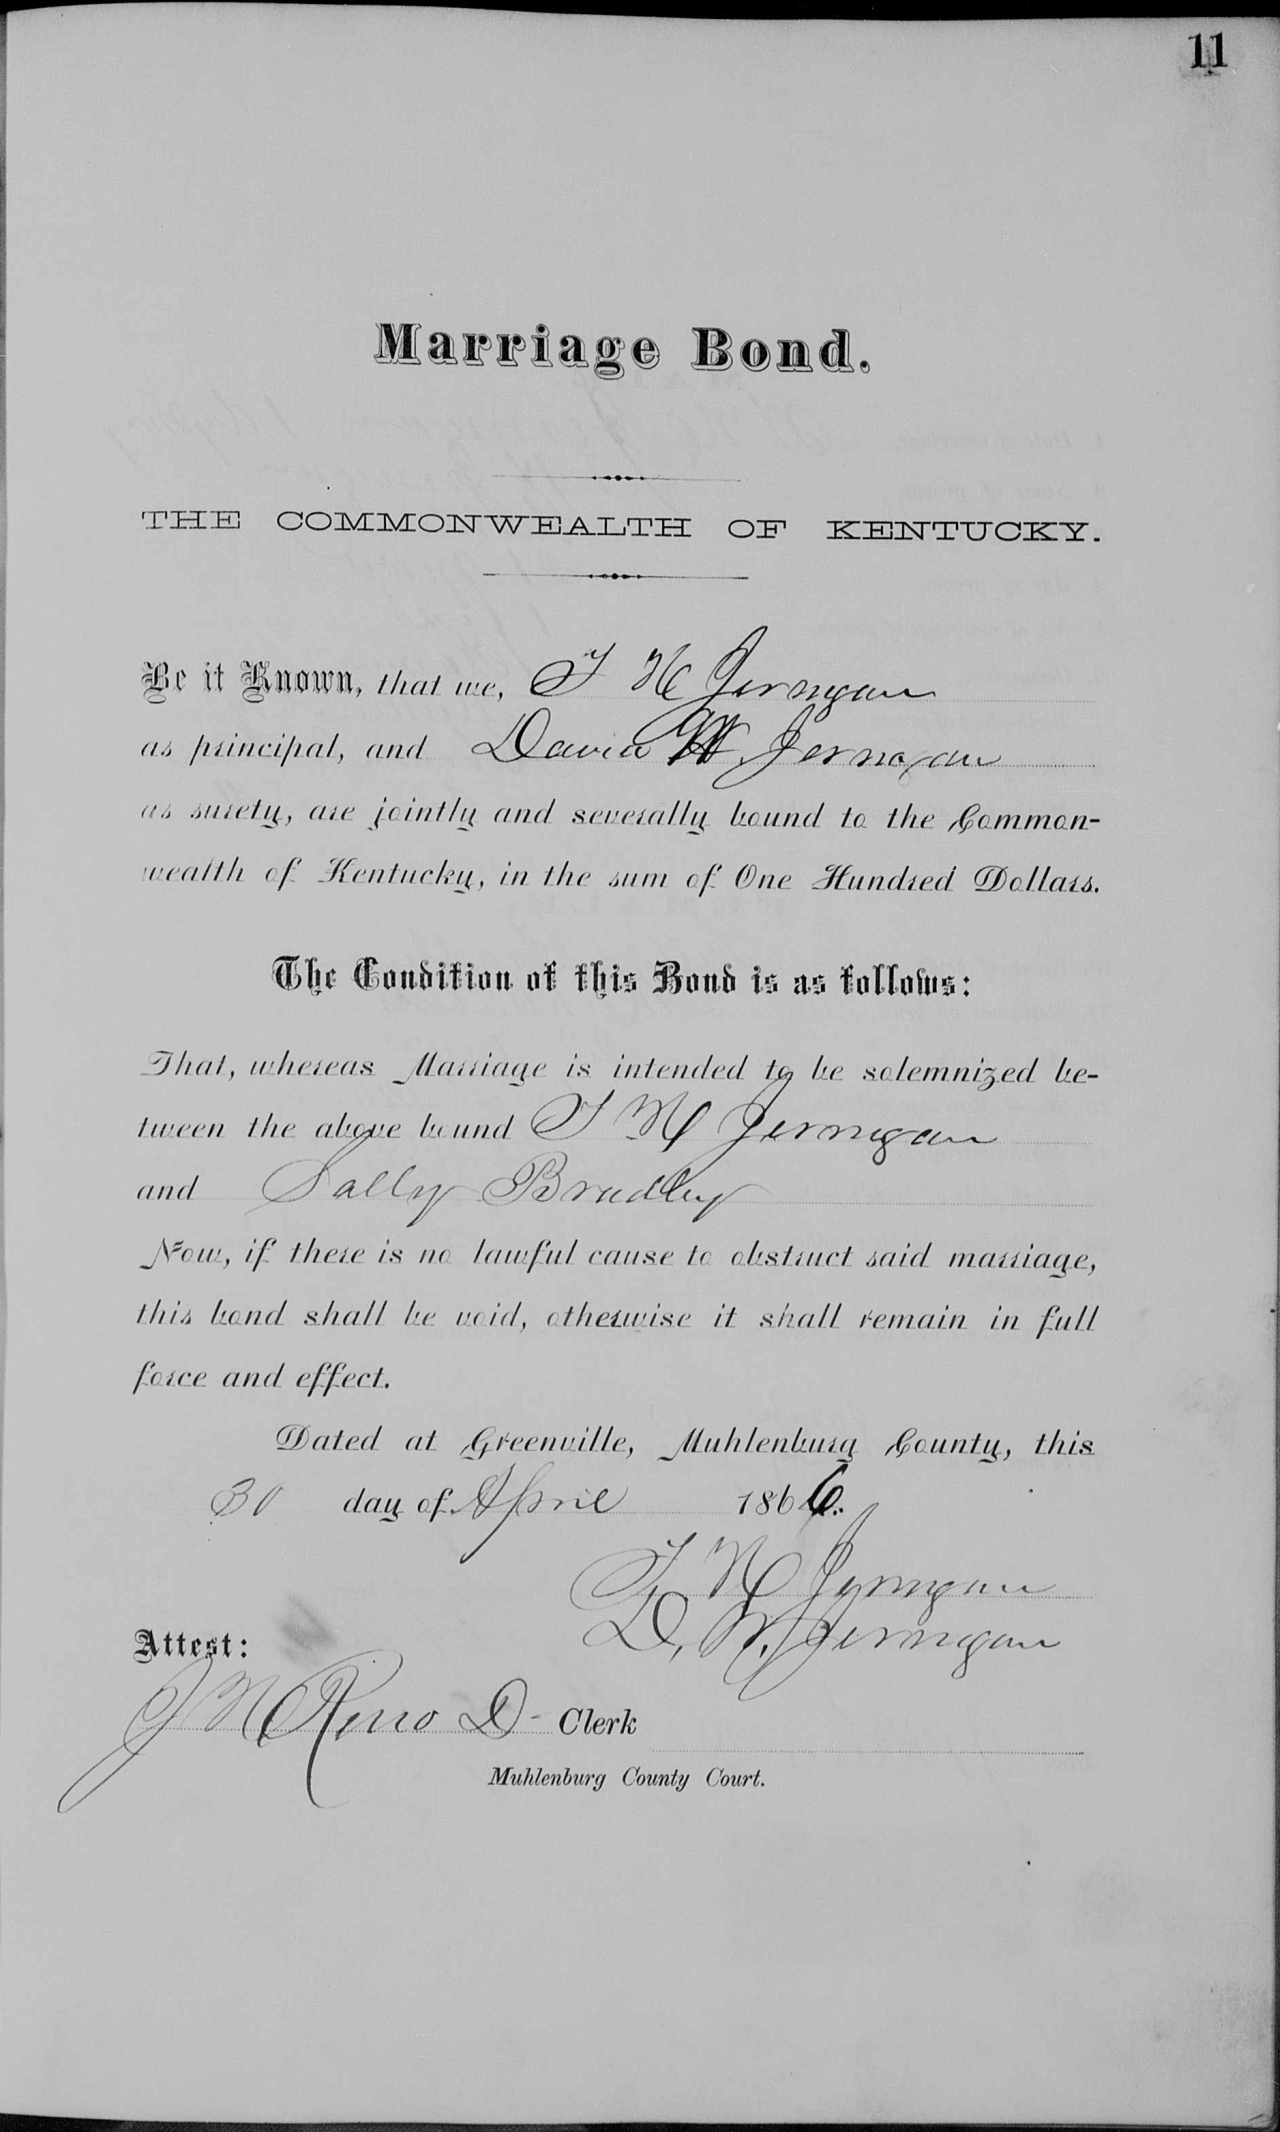 11
Marriage Bond.
THE COMMONWEALTH OF KENTUCKY.
Be it Known, that we, T H Jernigan
as principal, and David W. Jernigan
as surety, are jointly and severally bound to the Common-
wealth of Kentucky, in the sum of One Hundred Dollars.
The Condition of this Bond is as follows:
That, whereas Marriage is intended to be solemnized be-
tween the above bound T H Jernigan
and Sally Bradley
Now, if there is no lawful cause to obstruct said marriage,
this bond shall be void, otherwise it shall remain in full
force and effect.
Dated at Greenville, Muhlenburg County, this
30 day of April 1866.
T H Jernigan
D, W. Jernigan
Attest:
J W Reno D- Clerk
Muhlenburg County Court.